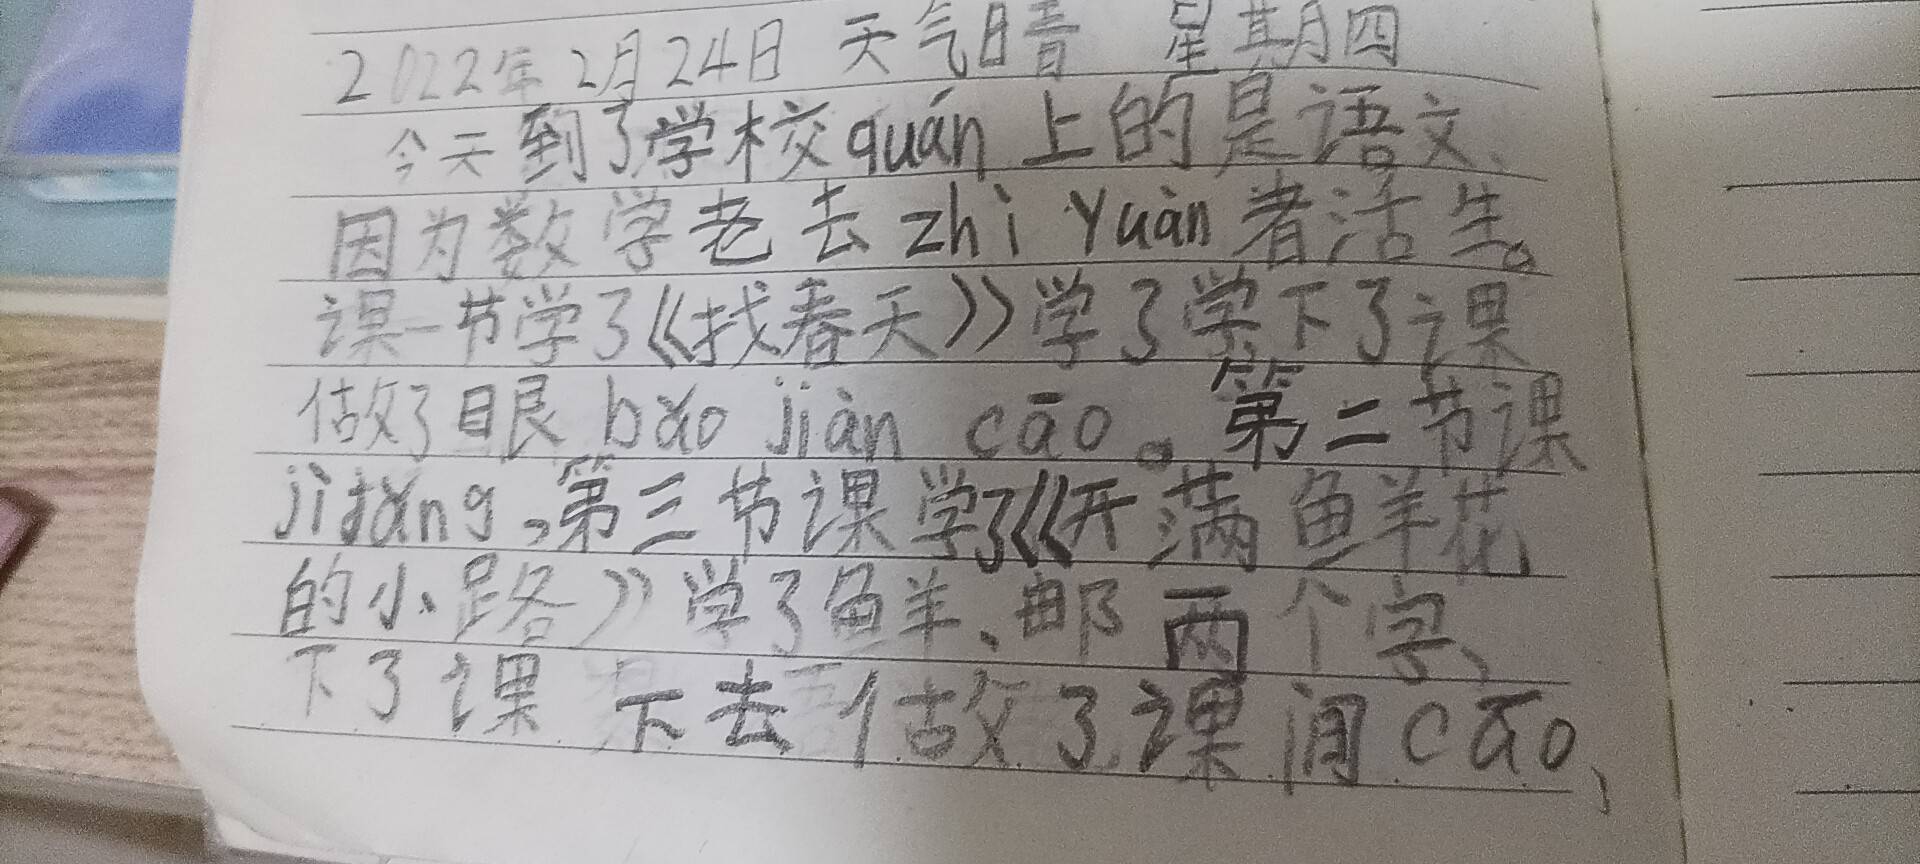 2022年2月24日 天气晴 星期四
今天到了学校quán上的是语文、
因为数学老去zhi Yuàn者活生。
课一节学了《找春天》学了学下了课
做了眼bǎo jiàn cāo。第二节课
jì tǎng,第三节课学了《开满鱼羊花
的小路》学了鱼羊、邮两个字、
下了课 下去做了课间cāo、